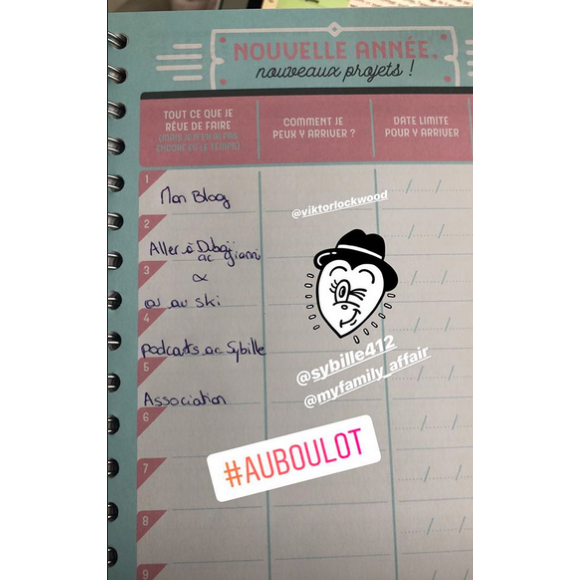 NOUVELLE ANNÉE,
nouveaux projets !
TOUT CE QUE JE
RÊVE DE FAIRE
ENCORE EU LE TEMPS)
COMMENT JE
PEUX Y ARRIVER ?
DATE LIMITE
POUR Y ARRIVER
1
Mon Blog
@viktorlockwood
2
Aller à Dubaï
ac gianni
3
ou au ski
4
podcasts ac Sybille
@sybille412
@myfamily_affair
5
Association
6
#AUBOULOT
7
8
9